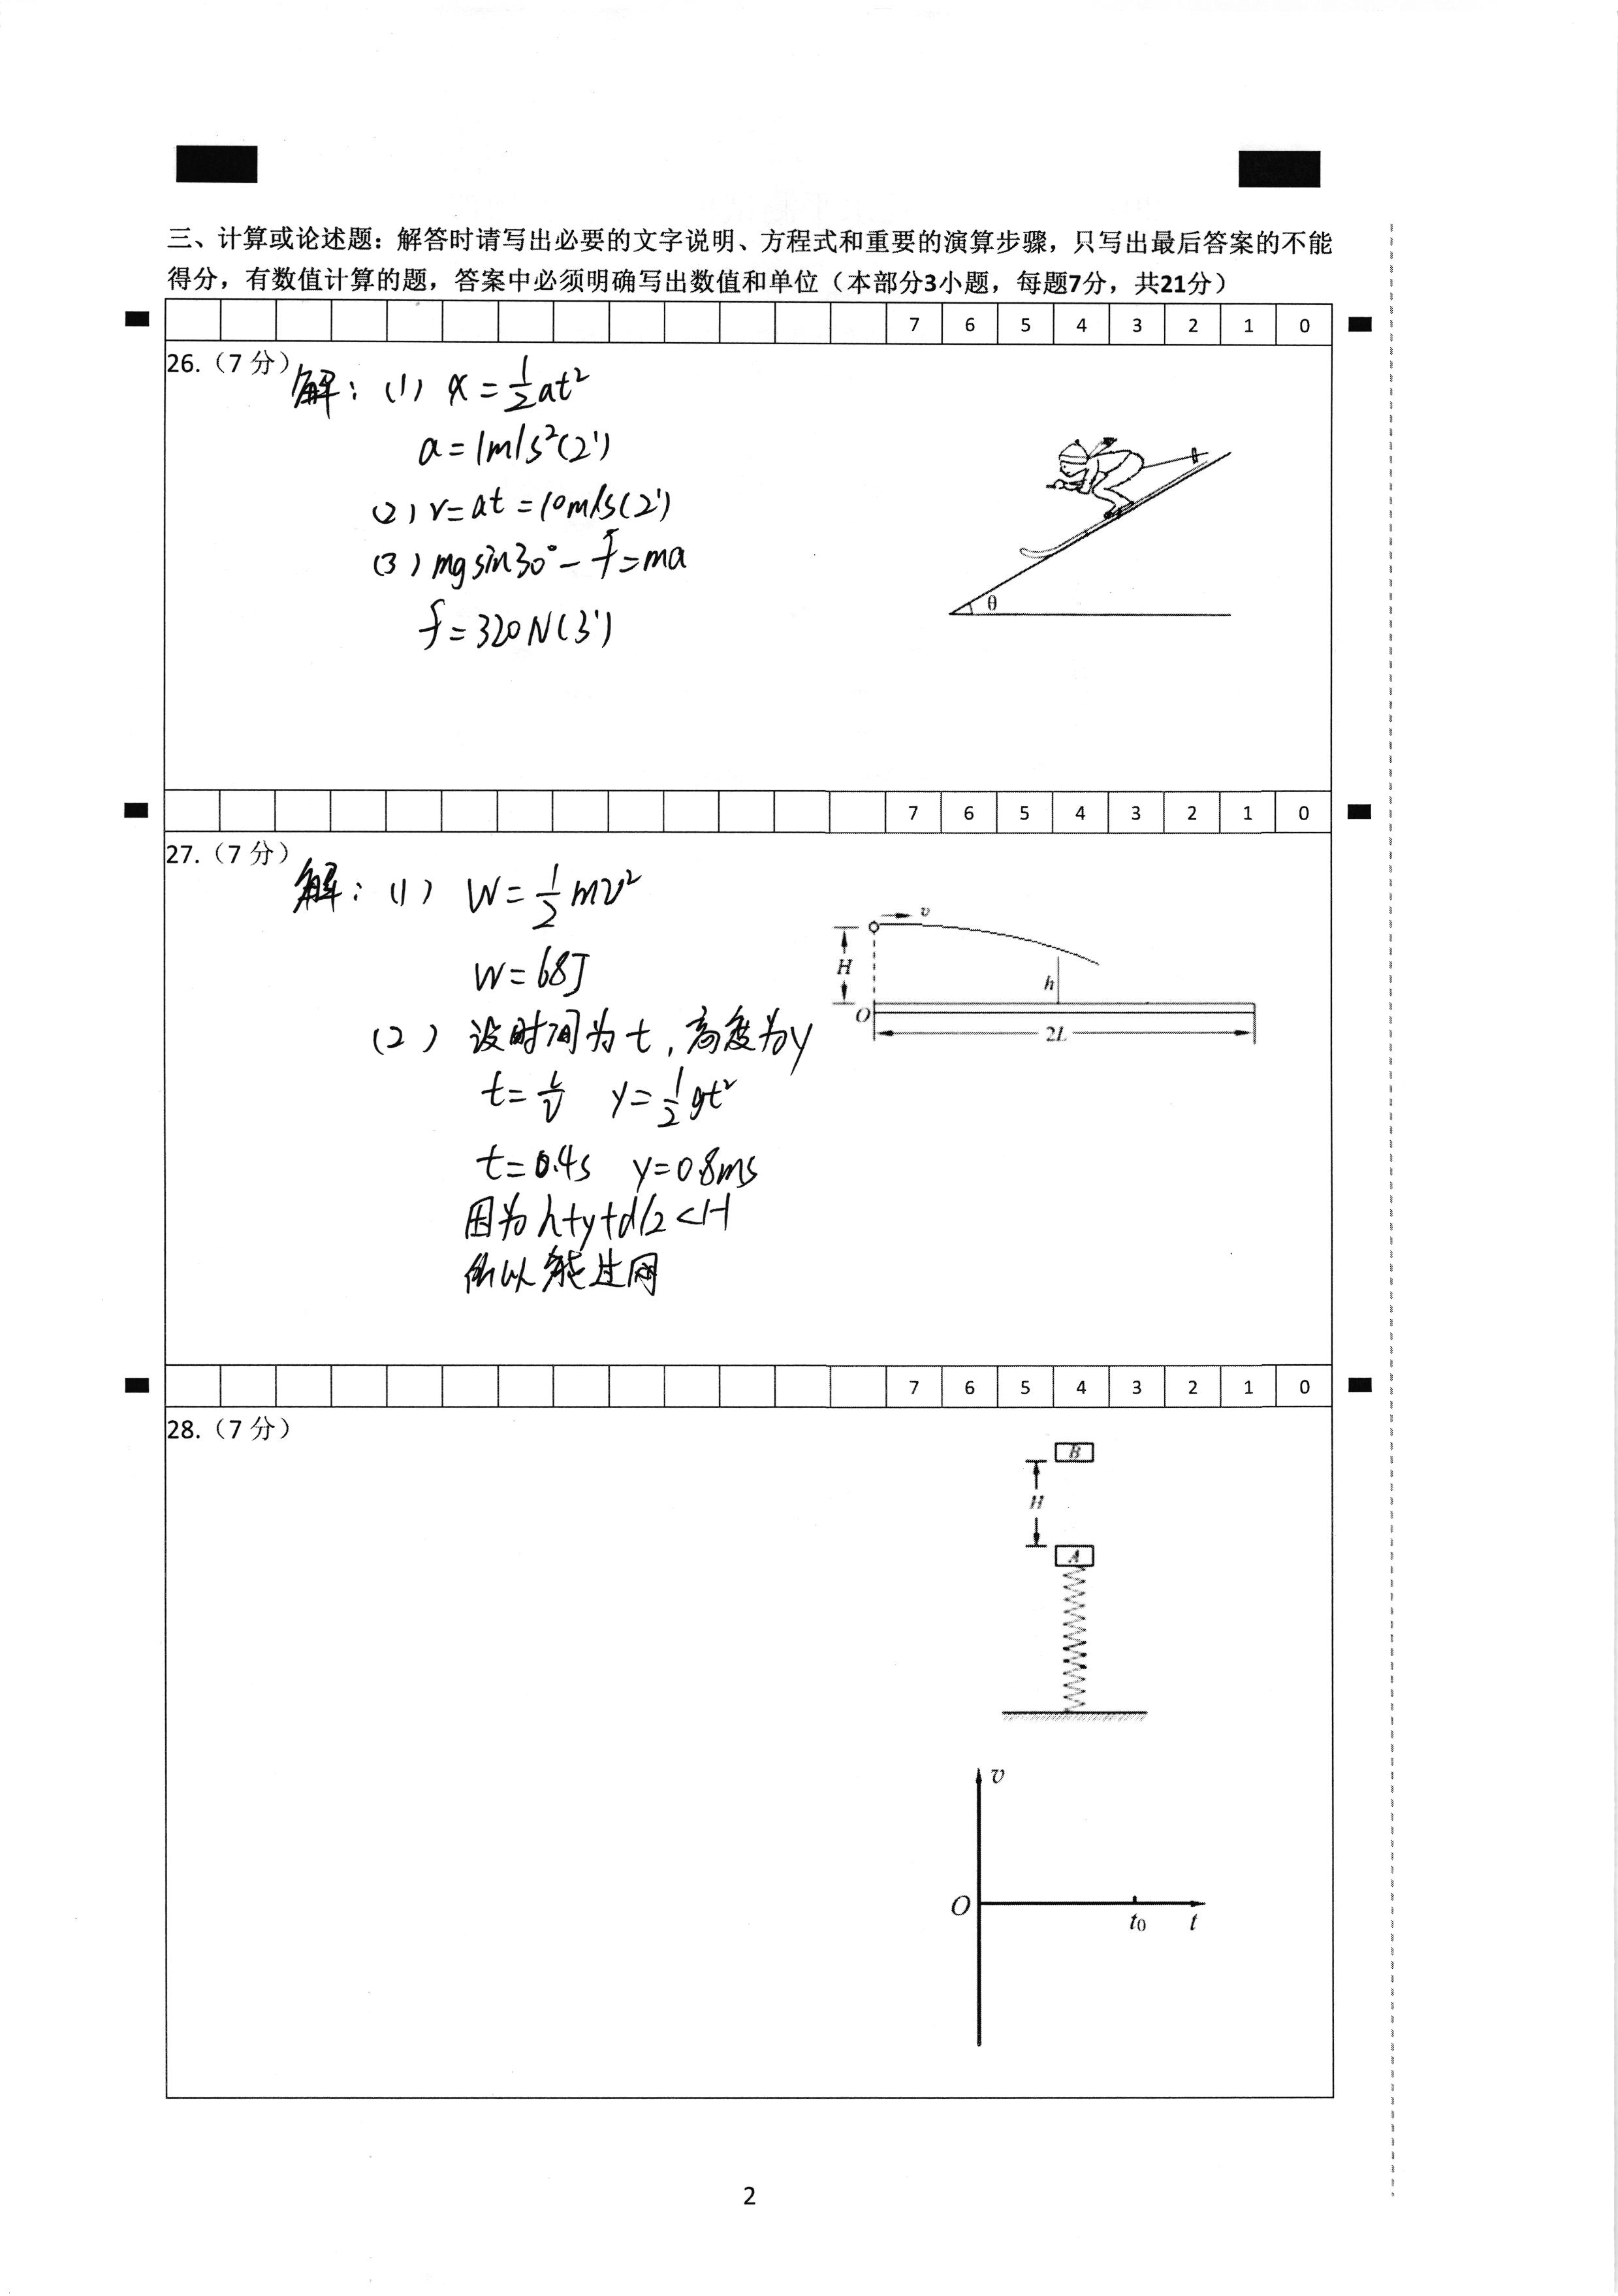 三、计算或论述题：解答时请写出必要的文字说明、方程式和重要的演算步骤，只写出最后答案的不能
得分，有数值计算的题，答案中必须明确写出数值和单位（本部分3小题，每题7分，共21分）
7 6 5 4 3 2 1 0
26.（7 分）
解：(1) x = 1/2 at²
a = 1m/s² (2')
(2) v = at = 10m/s (2')
(3) mg sin30° - f = ma
f = 320N (3')
θ
7 6 5 4 3 2 1 0
27.（7 分）
解：(1) W = 1/2 mv²
W = 68J
(2) 设时间为 t, 高度为y
t = L/v y = 1/2 gt²
t = 0.4s y = 0.8ms
因为 h+y+d/2 < H
所以能过网
v
H
h
O
2L
7 6 5 4 3 2 1 0
28.（7 分）
B
H
A
v
O
t₀
t
2